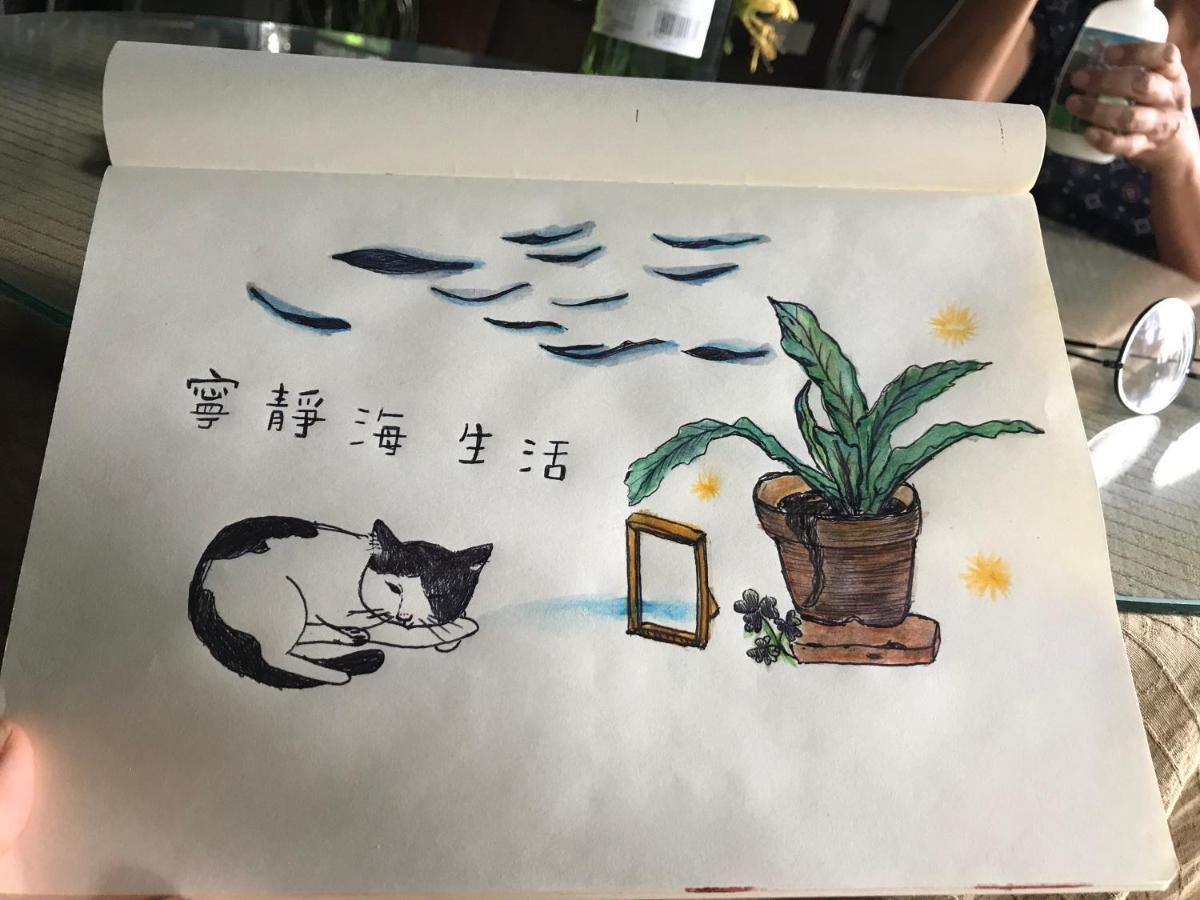 寧靜海 生活